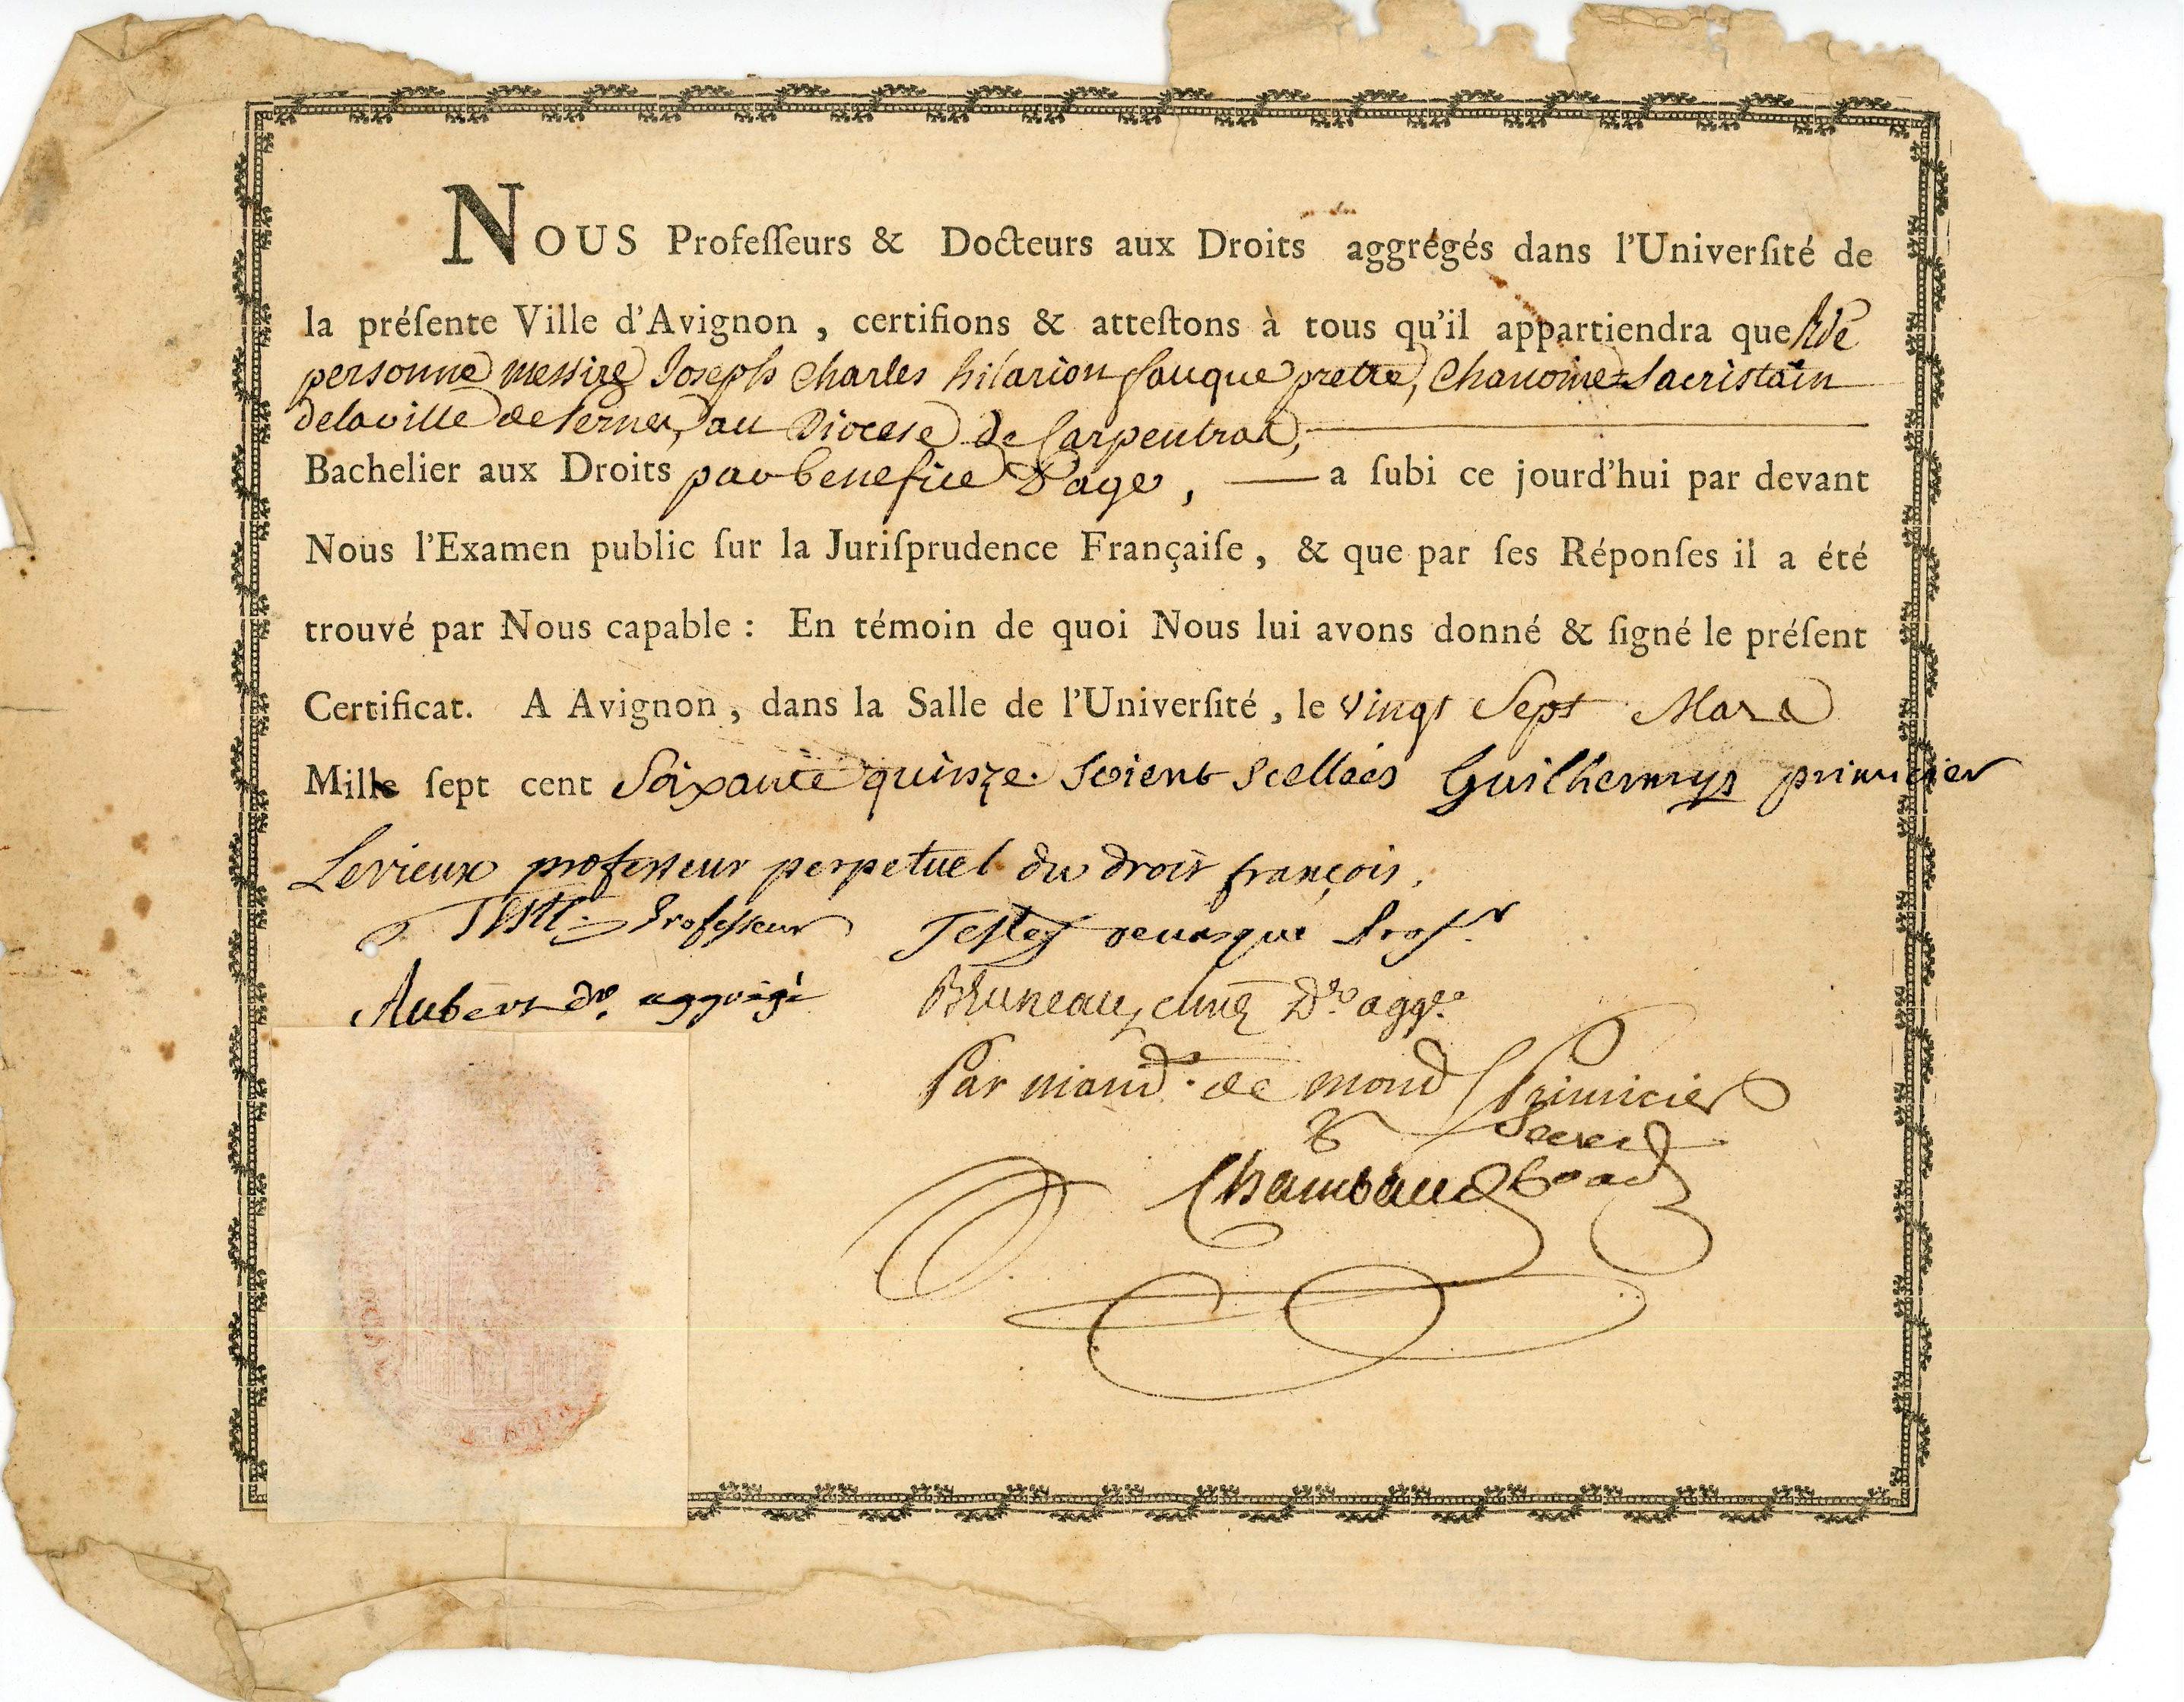 NOUS Profeſſeurs & Docteurs aux Droits aggrégés dans l'Univerſité de
la préſente Ville d'Avignon, certifions & atteſtons à tous qu'il appartiendra que Rde
personne messire Joseph Charles hilarion fauque pretre, Chanoine Sacristain
de la ville de Pernes, au Diocese de Carpentras,
Bachelier aux Droits par benefice D'age, — a ſubi ce jourd'hui par devant
Nous l'Examen public ſur la Juriſprudence Françaiſe, & que par ſes Réponſes il a été
trouvé par Nous capable : En témoin de quoi Nous lui avons donné & ſigné le préſent
Certificat. A Avignon, dans la Salle de l'Univerſité, le vingt Sept Mars
Mille ſept cent Soixante quinze. Soient Scellées Guilhermys primicier
Levieux professeur perpetuel du droit françois.
Professeur Teste venasque Profr
Aubert dr. aggrégé Bruneau, Dr. aggr.
Par mand. de mond Primicier
Chambaud